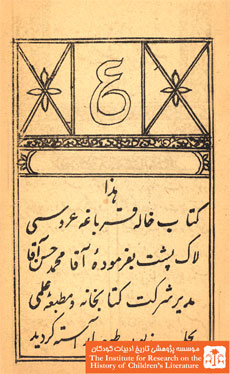 ع
هذا
کتاب خاله قرباغه عروسی
لاک پشت بفرمودهٔ آقا محمد حسن آقا
مدیر شرکت کتابخانه و مطبعه علمی
آراسته گردید
موسسه پژوهشی تاریخ ادبیات کودکان
The Institute for Research on the
History of Children's Literature